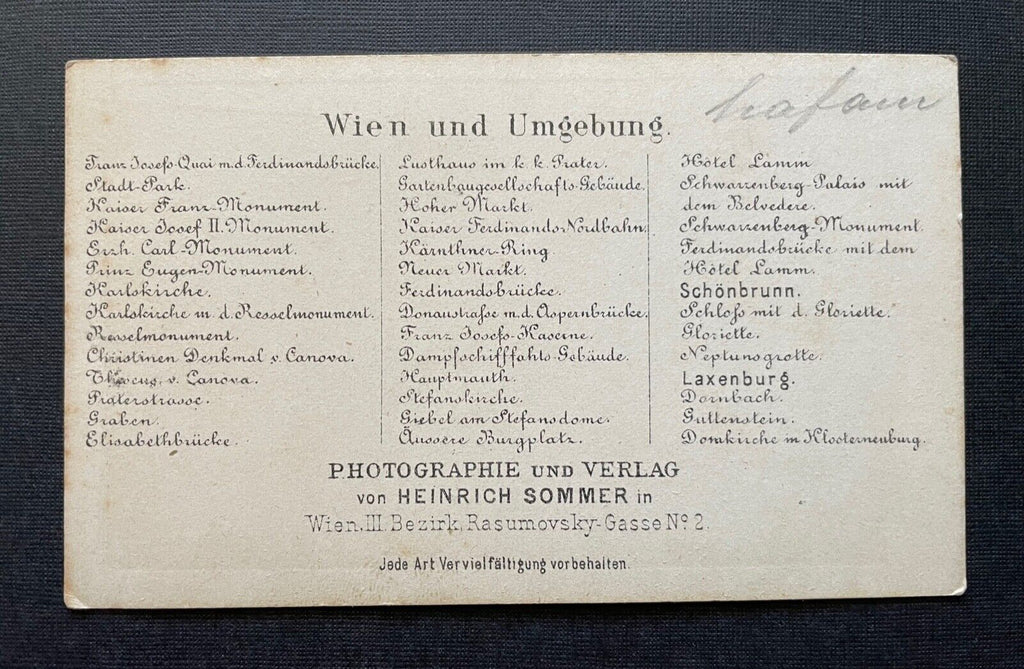 Wien und Umgebung.
Franz Josefs-Quai m.d. Ferdinandsbrücke.
Stadt-Park.
Kaiser Franz-Monument.
Kaiser Josef II. Monument.
Erzh. Carl-Monument.
Prinz Eugen-Monument.
Karlskirche.
Karlskirche m. d. Resselmonument.
Resselmonument.
Christinen Denkmal v. Canova.
Theseus. v. Canova.
Praterstrasse.
Graben.
Elisabethbrücke.
Lusthaus im k. k. Prater.
Gartenbaugesellschafts-Gebäude.
Hoher Markt.
Kaiser Ferdinands-Nordbahn.
Kärnthner-Ring
Neuer Markt.
Ferdinandsbrücke.
Donaustraße m. d. Aspernbrücke.
Franz Josefs-Kaserne.
Dampfschifffahts-Gebäude.
Hauptmauth.
Stefanskirche.
Giebel am Stefansdome.
Äussere Burgplatz.
Hôtel Lamm
Schwarzenberg-Palais mit
dem Belvedere.
Schwarzenberg-Monument.
Ferdinandsbrücke mit dem
Hôtel Lamm.
Schönbrunn.
Schloß mit d. Gloriette.
Gloriette.
Neptunsgrotte.
Laxenburg.
Dornbach.
Guttenstein.
Domkirche in Klosterneuburg.
PHOTOGRAPHIE UND VERLAG
von HEINRICH SOMMER in
Wien. III. Bezirk, Rasumovsky-Gasse No. 2.
Jede Art Vervielfältigung vorbehalten.